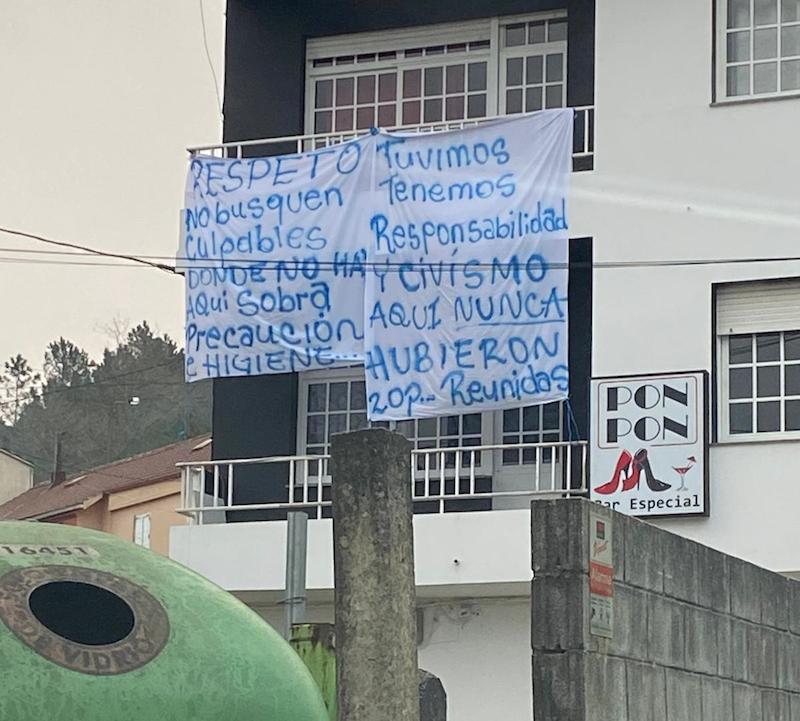 RESPETO
No busquen
culpables
DONDE NO HAY
AQui Sobra
Precaución
e HIGIENE...
Tuvimos
Tenemos
Responsabilidad
Y CIVISMO
AQUI NUNCA
HUBIERON
20p... Reunidas
PON
PON
Bar Especial
16451
DE VIDRIO
Alarma